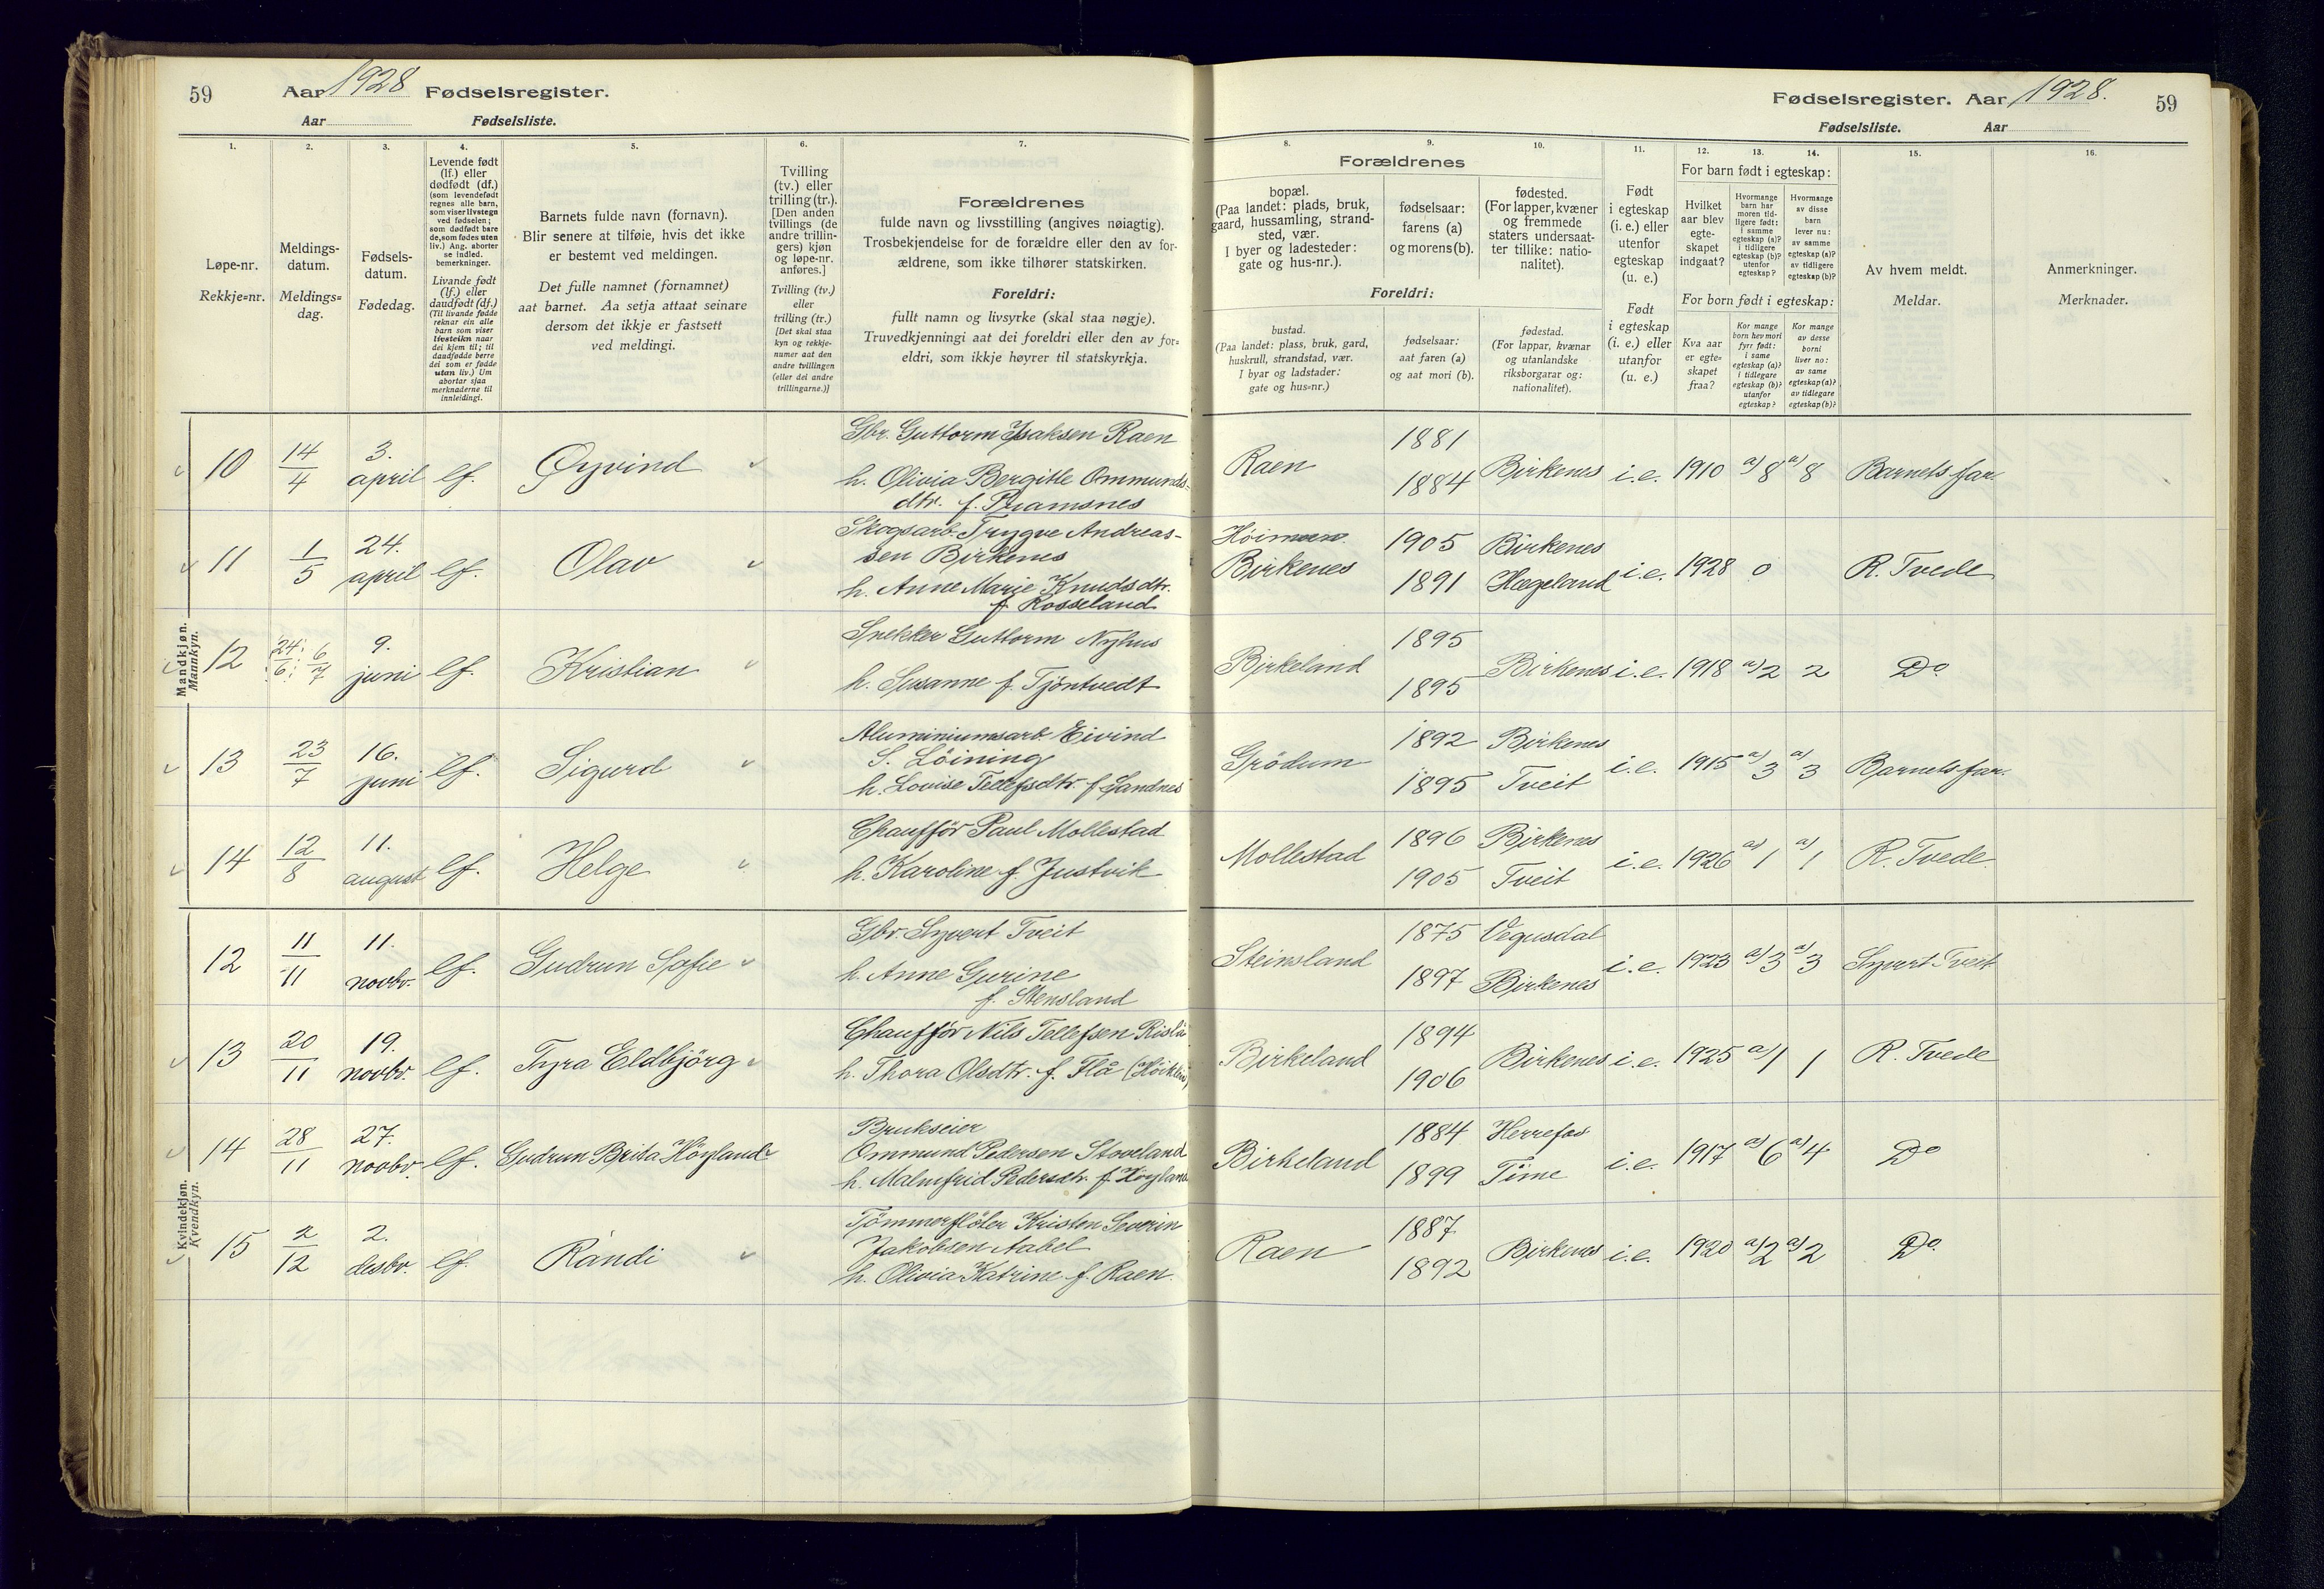 59 Aar 1928 Fødselsregister.
Aar Fødselsliste.
1. 2. 3. 4. 5. 6. 7.
Løpe-nr.
Rekkje=nr.
Meldings-
datum.
Meldings=
dag.
Fødsels-
datum.
Fødedag.
Levende født
(lf.) eller
dødfødt (df.)
(som levendefødt
regnes alle barn,
som viser livstegn
ved fødselen;
som dødfødt bare
de, som fødes uten
liv.) Ang. aborter
se indled.
bemerkninger.
Livande født
(lf.) eller
daudfødt (df.)
(Til livande fødde
reknar ein alle
barn som viser
livsteikn naar
dei kjem til; til
daudfødde berre
dei som er fødde
utan liv.) Um
abortar sjaa
merknaderne til
innleidingi.
Barnets fulde navn (fornavn).
Blir senere at tilføie, hvis det ikke
er bestemt ved meldingen.
Det fulle namnet (fornamnet)
aat barnet. Aa setja attaat seinare
dersom det ikkje er fastsett
ved meldingi.
Tvilling
(tv.) eller
trilling (tr.).
[Den anden
tvillings (de
andre trillin-
gers) kjøn
og løpe-nr.
anføres.]
Tvilling (tv.)
eller
trilling (tr.)
[Det skal staa
kyn og rekkje-
numer aat den
andre tvillingen
(eller dei andre
trillingarne.)]
Forældrenes
fulde navn og livsstilling (angives nøiagtig).
Trosbekjendelse for de forældre eller den av for-
ældrene, som ikke tilhører statskirken.
Foreldri:
fullt namn og livsyrke (skal staa nøgje).
Truvedkjenningi aat dei foreldri eller den av for=
eldri, som ikkje høyrer til statskyrkja.
Mandkjøn.
Mannkyn.
10 14/4 3. april lf. Øyvind
Gbr. Guttorm Isaksen Raen
h. Olivia Bergitte Ommunds-
dtr. f. Pramsnes
11 1/5 24. april lf. Olav
Skogsarb. Trygve Andreas-
sen Birkenes
h. Anne Marie Knudsdtr.
f. Rosseland
12 24/6 6/7 9. juni lf. Kristian
Snekker Guttorm Nyhus
h. Susanne f. Tjöntvedt
13 23/7 16. juni lf. Sigurd
Aluminiumsarb. Eivind
S. Löining
h. Lovise Tellefsdtr. f. Sandnes
14 12/8 11. august lf. Helge
Chaufför Paul Mollestad
h. Karoline f. Justvik
Kvindekjøn.
Kvendkyn.
12 11/11 11. novbr. lf. Gudrun Sofie
Gbr. Syvert Tveit
h. Anne Gurine
f. Stensland
13 20/11 19. novbr. lf. Thyra Eldbjörg
Chaufför Nils Tellefsen
h. Thora Olsdtr. f. Flå
14 28/11 27. novbr. lf. Gudrun Brita Höyland
Brukseier
Ommund Pedersen Stoveland
h. Malmfrid Pedersdtr. f. Höyland
15 2/12 2. desbr. lf. Randi
Tömmerflöter Kristen Severin
Jakobsen Aabel
h. Olivia Katrine f. Raen
Fødselsregister. Aar 1928. 59
Fødselsliste. Aar
8. 9. 10. 11. 12. 13. 14. 15. 16.
Forældrenes
bopæl.
(Paa landet: plads, bruk,
gaard, hussamling, strand-
sted, vær.
I byer og ladesteder:
gate og hus-nr.).
fødselsaar:
farens (a)
og morens (b).
fødested.
(For lapper, kvæner
og fremmede
staters undersaat-
ter tillike: natio-
nalitet).
Foreldri:
bustad.
(Paa landet: plass, bruk, gard,
huskrull, strandstad, vær.
I byar og ladstader:
gate og hus-nr.)
fødselsaar:
aat faren (a)
og aat mori (b).
fødestad.
(For lappar, kvænar
og utanlandske
riksborgarar og:
nationalitet).
Født
i egteskap
(i. e.) eller
utenfor
egteskap
(u. e.)
Født
i egteskap
(i. e.) eller
utanfor
(u. e.)
For barn født i egteskap:
Hvilket
aar blev
egte-
skapet
indgaat?
Hvormange
barn har
moren tid-
ligere født:
i samme
egteskap (a)?
i tidligere
egteskap (b)?
utenfor
egteskap?
Hvormange
av disse
barn
lever nu:
av samme
egteskap (a)?
av tidligere
egteskap (b)?
For born født i egteskap:
Kva aar
er egte=
skapet
fraa?
Kor mange
born hev mori
fyrr født:
i same
egteskap (a)?
i tidlegare
egteskap (b)?
utanfor
egteskap?
Kor mange
av desse
borni
liver no:
av same
egteskap (a)?
av tidlegare
egteskap (b)?
Av hvem meldt.
Meldar.
Anmerkninger.
Merknader.
Raen 1881 1884 Birkenes i.e. 1910 a) 8 a) 8 Barnets far.
Birkenes 1905 Birkenes 1891 Hægeland i.e. 1928 0 R. Tvede
Birkeland 1895 1895 Birkenes i.e. 1918 a) 2 2 Do
Grödum 1892 Birkenes 1895 Tveit i.e. 1915 a) 3 a) 3 Barnets far.
Mollestad 1896 Birkenes 1905 Tveit i.e. 1926 a) 1 a) 1 R. Tvede
Steinsland 1875 Vegusdal 1897 Birkenes i.e. 1923 a) 3 a) 3 Syvert Tveit
Birkeland 1894 1906 Birkenes i.e. 1925 a) 1 1 R. Tvede
Birkeland 1884 Herrefos 1899 Time i.e. 1917 a) 6 a) 4 Do
Raen 1887 1892 Birkenes i.e. 1920 a) 2 a) 2 Do.